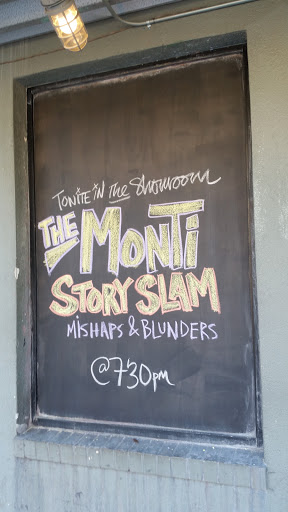 TONITE iN the Showroom
THE MONTi
STORY SLAM
MiSHAPS & BLUNDERS
@7:30pm